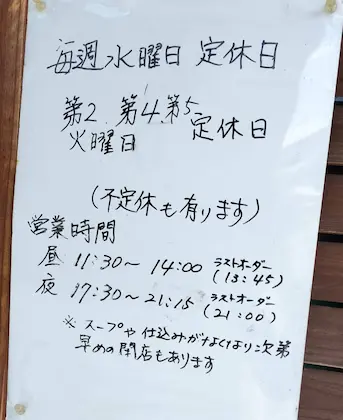 毎週水曜日 定休日
第2.第4.第5 定休日
火曜日
(不定休も有ります)
営業時間
昼 11:30〜14:00 ラストオーダー(13:45)
夜 17:30〜21:15 ラストオーダー(21:00)
※スープや仕込みがなくなり次第
早めの閉店もあります